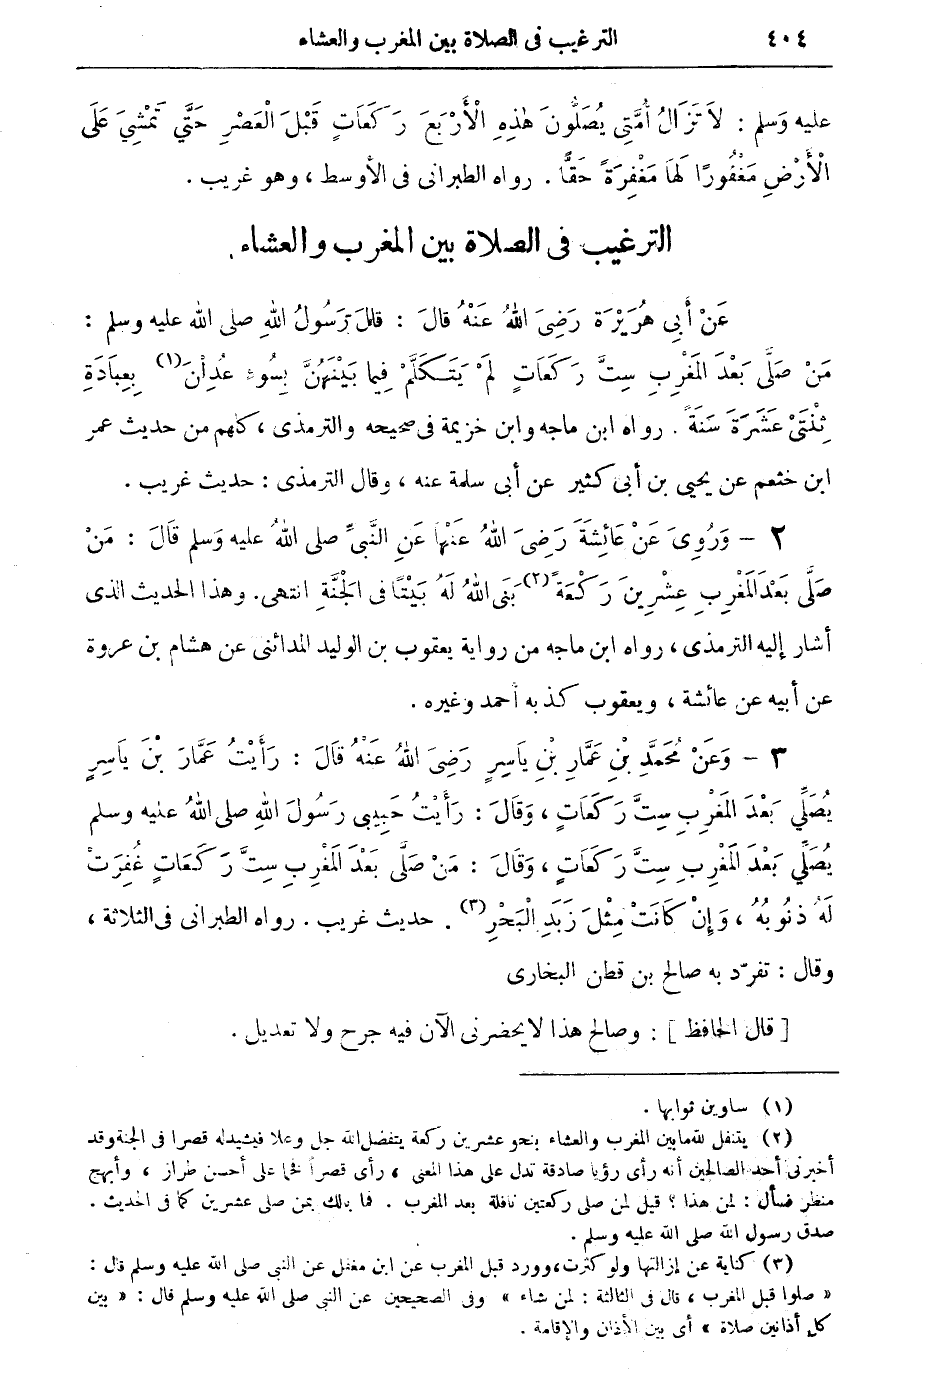 ٤٠٤ الترغيب فى الصلاة بين المغرب والعشاء
عليه وَسلم : لاَ تَزَالُ أُمَّتِى يُصَلُّونَ هٰذِهِ الْأَرْبَعَ رَكَعَاتٍ قَبْلَ الْعَصْرِ حَتَّى تَمْشِيَ عَلَى
الْأَرْضِ مَغْفُورًا لَهَا مَغْفِرَةً حَقًّا . رواه الطبرانى فى الأوسط ، وهو غريب .
الترغيب فى الصلاة بين المغرب والعشاء
عَنْ أَبِي هُرَيْرَةَ رَضِيَ اللهُ عَنْهُ قالَ : قالَ رَسُولُ اللهِ صلى الله عليه وسلم :
مَنْ صَلَّى بَعْدَ المَغْرِبِ سِتَّ رَكَعَاتٍ لَمْ يَتَكَلَّمْ فِيما بَيْنَهُنَّ بِسُوءٍ عُدِلْنَ (١) بِعِبَادَةِ
ثِنْتَيْ عَشَرَةَ سَنَةً . رواه ابن ماجه وابن خزيمة فى صحيحه والترمذى ، كلهم من حديث عمر
ابن خثعم عن يحيى بن أبى كثير عن أبى سلمة عنه ، وقال الترمذى : حديث غريب .
٢ – وَرُوِىَ عَنْ عَائِشَةَ رَضِىَ اللهُ عَنْهَا عَنِ النَّبِيِّ صلى اللهُ عليه وَسلم قَالَ : مَنْ
صَلَّى بَعْدَ المَغْرِبِ عِشْرِينَ رَكْعَةً (٢) بَنَى اللهُ لَهُ بَيْتًا فى الجَنَّةِ انتهى. وهذا الحديث الذى
أشار إليه الترمذى ، رواه ابن ماجه من رواية يعقوب بن الوليد المدائنى عن هشام بن عروة
عن أبيه عن عائشة ، ويعقوب كذبه أحمد وغيره .
٣ – وَعَنْ مُحَمَّدِ بْنِ عَمَّارِ بْنِ يَاسِرٍ رَضِىَ اللهُ عَنْهُ قَالَ : رَأَيْتُ عَمَّارَ بْنَ يَاسِرٍ
يُصَلِّي بَعْدَ المَغْرِبِ سِتَّ رَكَعَاتٍ ، وَقَالَ : رَأَيْتُ حَبِيبِى رَسُولَ اللهِ صلى اللهُ عليه وسلم
يُصَلِّي بَعْدَ المَغْرِبِ سِتَّ رَكَعَاتٍ ، وَقَالَ : مَنْ صَلَّى بَعْدَ المَغْرِبِ سِتَّ رَكَعَاتٍ غُفِرَتْ
لَهُ ذنُوبُهُ ، وَإِنْ كَانَتْ مِثْلَ زَبَدِ الْبَحْرِ (٣) . حديث غريب . رواه الطبرانى فى الثلاثة ،
وقال : تفرّد به صالح بن قطن البخارى
[ قال الحافظ ] : وصالح هذا لا يحضرنى الآن فيه جرح ولا تعديل .
(١) ساوين ثوابها .
(٢) يتنفل لله ما بين المغرب والعشاء بنحو عشرين ركعة يتفضل الله جل وعلا فيشيد له قصرا فى الجنة وقد
أخبرنى أحد الصالحين أنه رأى رؤيا صادقة تدل على هذا المعنى ، رأى قصراً فخما على أحسن طراز ، وأبهج
منظر فسأل : لمن هذا ؟ قيل لمن صلى ركعتين نافلة بعد المغرب . فما بالك بمن صلى عشرين كما فى الحديث .
صدق رسول الله صلى الله عليه وسلم .
(٣) كناية عن إزالتها ولو كثرت، وورد قبل المغرب عن ابن مغفل عن النبى صلى الله عليه وسلم قال :
« صلوا قبل المغرب ، قال فى الثالثة : لمن شاء » وفى الصحيحين عن النبى صلى الله عليه وسلم قال : « بين
كل أذانين صلاة » أى بين الأذان والإقامة .